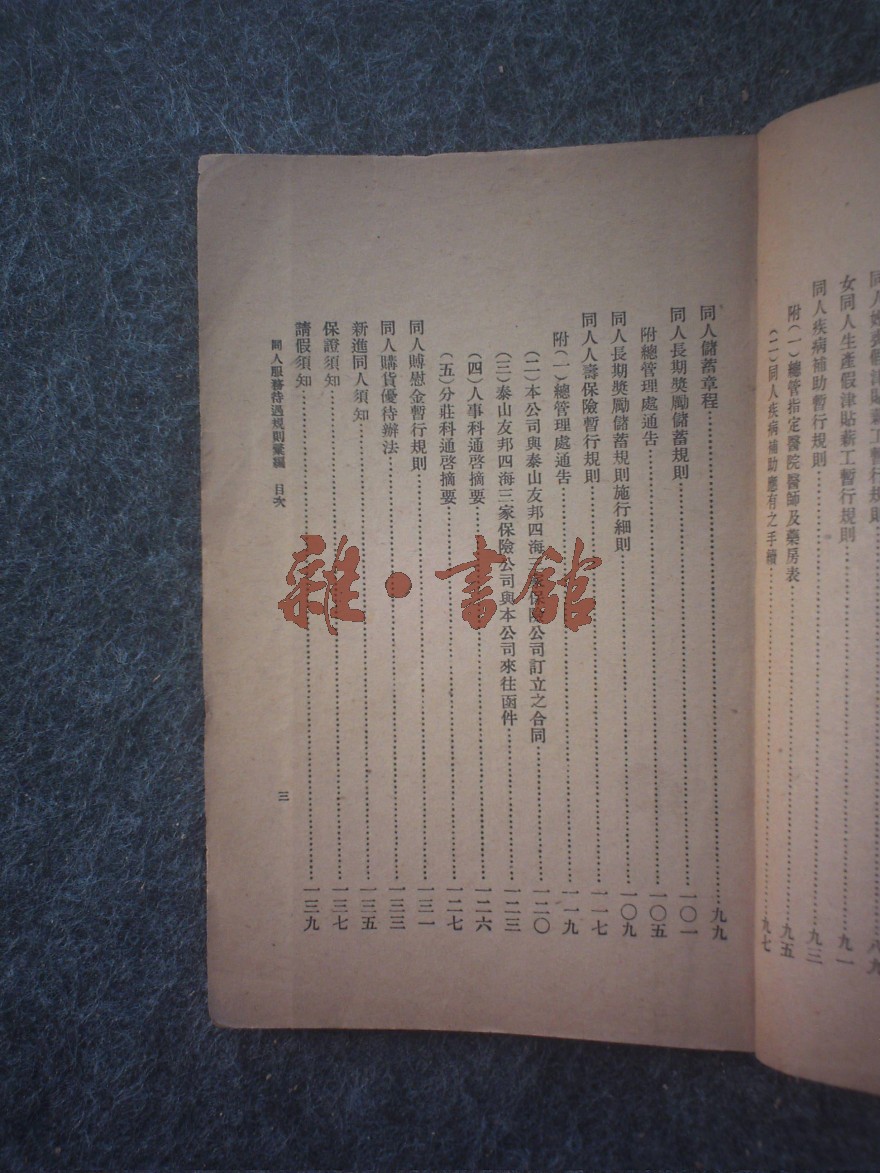 女同人生產假津貼薪工暫行規則……九一
同人疾病補助暫行規則……九三
附(一)總管指定醫院醫師及藥房表……九五
(二)同人疾病補助應有之手續……九七
同人儲蓄章程……九九
同人長期獎勵儲蓄規則……一〇一
附總管理處通告……一〇五
同人長期獎勵儲蓄規則施行細則……一〇九
同人人壽保險暫行規則……一一七
附(一)總管理處通告……一一九
(二)本公司與泰山友邦四海三家保險公司訂立之合同……一二〇
(三)泰山友邦四海三家保險公司與本公司來往函件……一二三
(四)人事科通啓摘要……一二六
(五)分莊科通啓摘要……一二七
同人賻慰金暫行規則……一三一
同人購貨優待辦法……一三三
新進同人須知……一三五
保證須知……一三七
請假須知……一三九
同人服務待遇規則彙編 目次
三
雜·書館